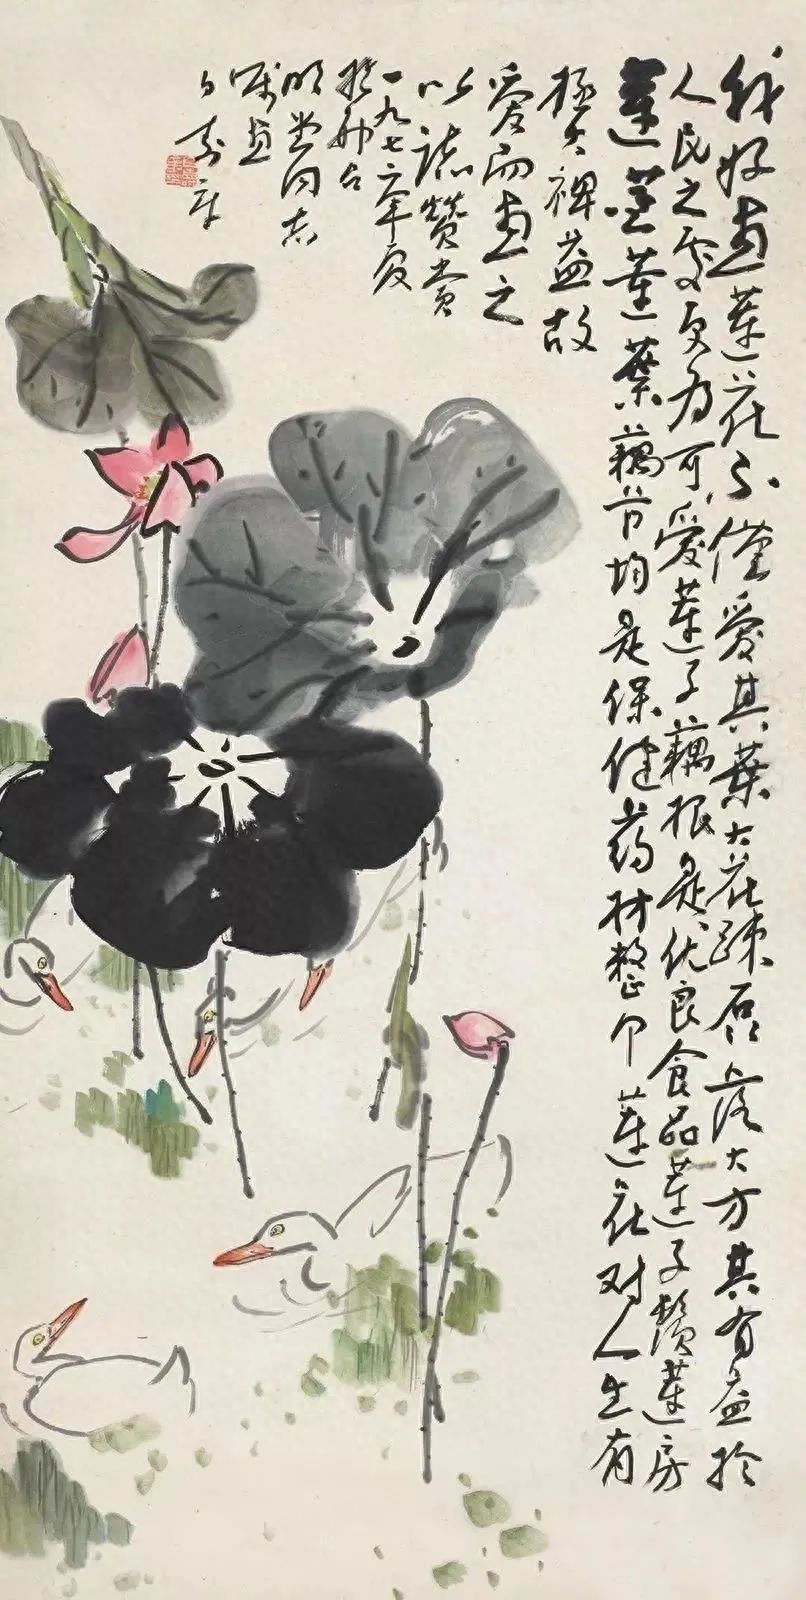 我好画莲花不仅爱其叶大花疎磊落大方其有益於
人民之处更为可爱莲子藕根是优良食品莲子鬚莲房
莲莖莲葉藕节均是保健药材整个莲花对人生有
极大裨益故
爱而画之
以誌赞赏
一九七二年夏
於邢台
明堂同志
嘱画
白寿章